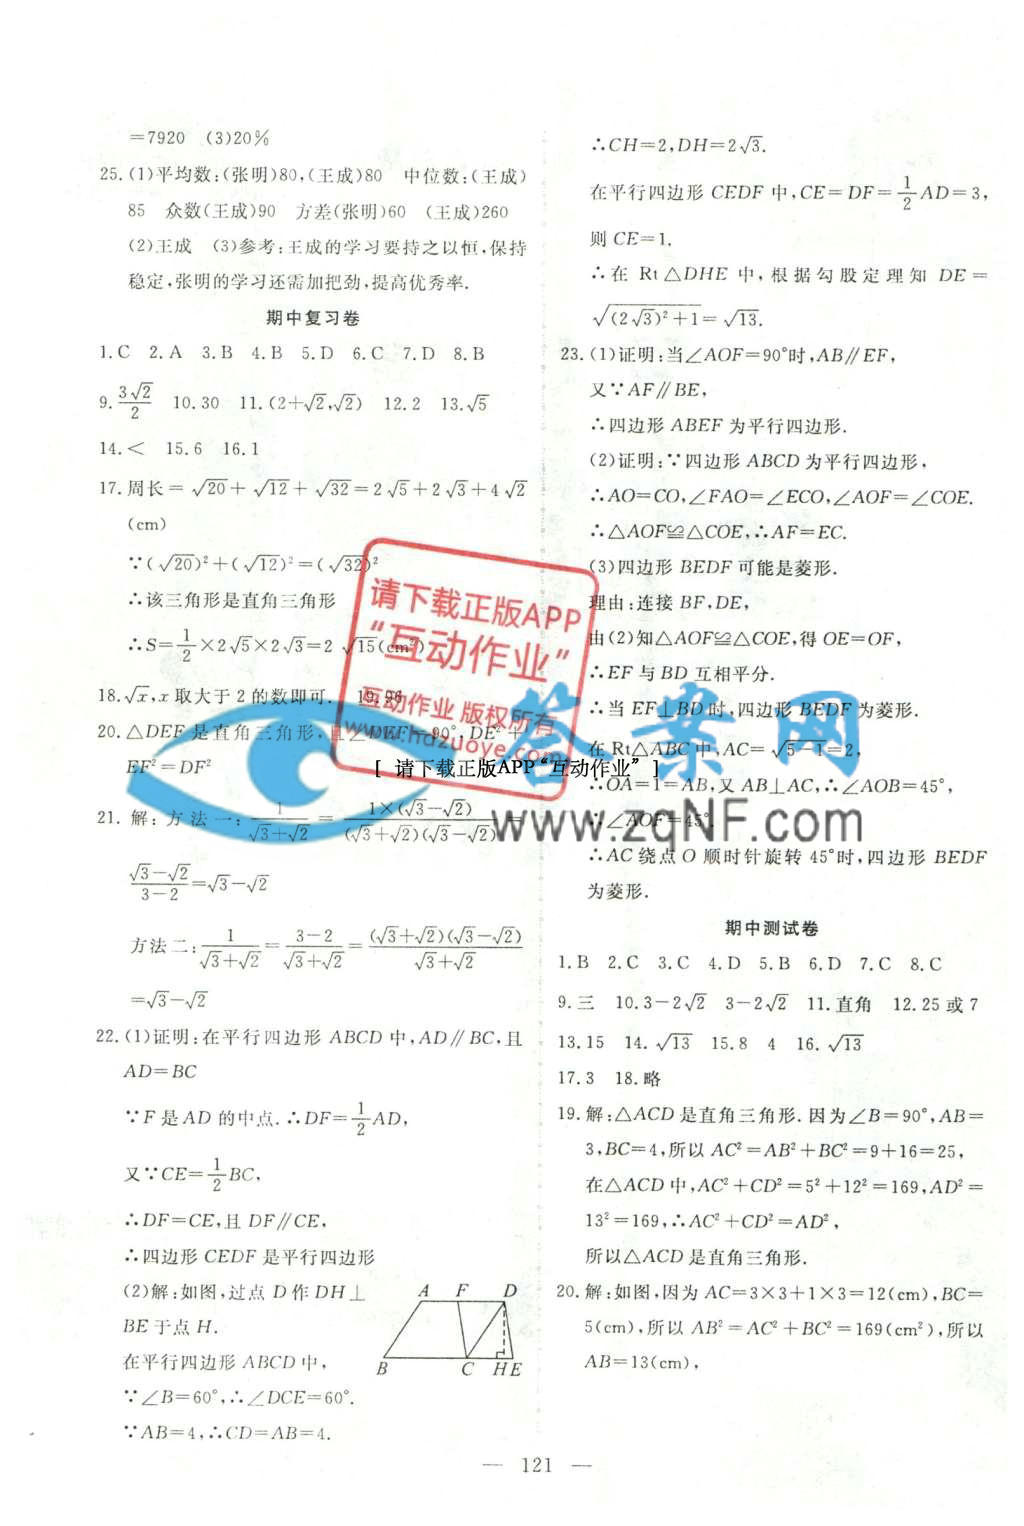 =7920 (3)20%
25.(1)平均数:(张明)80,(王成)80 中位数:(王成)
85 众数(王成)90 方差(张明)60 (王成)260
(2)王成 (3)参考:王成的学习要持之以恒,保持
稳定,张明的学习还需加把劲,提高优秀率.
期中复习卷
1.C 2.A 3.B 4.B 5.D 6.C 7.D 8.B
9.3√2/2 10.30 11.(2+√2,√2) 12.2 13.√5
14.< 15.6 16.1
17.周长=√20+√12+√32=2√5+2√3+4√2
(cm)
∵(√20)²+(√12)²=(√32)²
∴该三角形是直角三角形
∴S=1/2×2√5×2√3=2√15(cm²)
18.√x,x取大于2的数即可. 19.96
20.△DEF是直角三角形,且∠DEF=90°,DE²+
EF²=DF²
21.解:方法一:1/(√3+√2)=1×(√3-√2)/((√3+√2)(√3-√2))=
(√3-√2)/(3-2)=√3-√2
方法二:1/(√3+√2)=(3-2)/(√3+√2)=(√3+√2)(√3-√2)/(√3+√2)
=√3-√2
22.(1)证明:在平行四边形ABCD中,AD∥BC,且
AD=BC
∵F是AD的中点.∴DF=1/2AD,
又∵CE=1/2BC,
∴DF=CE,且DF∥CE,
∴四边形CEDF是平行四边形
(2)解:如图,过点D作DH⊥
BE于点H.
在平行四边形ABCD中,
∵∠B=60°,∴∠DCE=60°.
∵AB=4,∴CD=AB=4.
A F D
B C H E
∴CH=2,DH=2√3.
在平行四边形CEDF中,CE=DF=1/2AD=3,
则CE=1.
∴在Rt△DHE中,根据勾股定理知DE=
√((2√3)²+1)=√13.
23.(1)证明:当∠AOF=90°时,AB∥EF,
又∵AF∥BE,
∴四边形ABEF为平行四边形.
(2)证明:∵四边形ABCD为平行四边形,
∴AO=CO,∠FAO=∠ECO,∠AOF=∠COE.
∴△AOF≌△COE,∴AF=EC.
(3)四边形BEDF可能是菱形.
理由:连接BF,DE,
由(2)知△AOF≌△COE,得OE=OF,
∴EF与BD互相平分.
∴当EF⊥BD时,四边形BEDF为菱形.
在Rt△ABC中,AC=√(5-1)=2,
∴OA=1=AB,又AB⊥AC,∴∠AOB=45°,
∴∠AOF=45°
∴AC绕点O顺时针旋转45°时,四边形BEDF
为菱形.
期中测试卷
1.B 2.C 3.C 4.D 5.B 6.D 7.C 8.C
9.三 10.3-2√2 3-2√2 11.直角 12.25或7
13.15 14.√13 15.8 4 16.√13
17.3 18.略
19.解:△ACD是直角三角形.因为∠B=90°,AB=
3,BC=4,所以AC²=AB²+BC²=9+16=25,
在△ACD中,AC²+CD²=5²+12²=169,AD²=
13²=169,∴AC²+CD²=AD²,
所以△ACD是直角三角形.
20.解:如图,因为AC=3×3+1×3=12(cm),BC=
5(cm),所以AB²=AC²+BC²=169(cm²),所以
AB=13(cm),
— 121 —
请下载正版APP
“互动作业”
互动作业 版权所有
www.hdzuoye.com
[ 请下载正版APP“互动作业” ]
答案网
www.zqNF.com